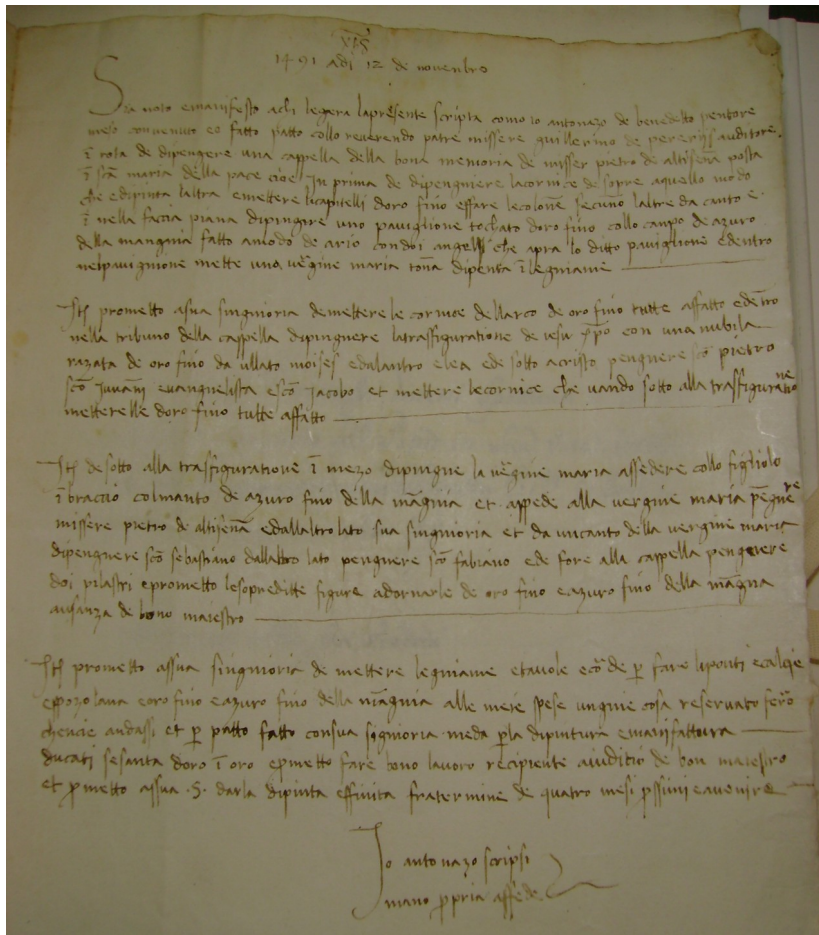 xps
1491 adi 12 de novenbro
Sia noto emanifesto achi legera lapresente scripta como io antonazo de benedetto pentore
meso convenuto eo fatto patto collo reverendo patre missere guillermo de pererijs auditore
ī rota de dipengere una cappella della bona memoria de misser pietro de altisenā posta
ī scā maria della pace cioe In prima de dipengniere lacornice de sopre aquello modo
che edipinta laltra emettere licapitelli doro fino effare lecolone secuno laltre da canto e
ī nella faccia piana dipingire uno pavigllione tochato doro fino collo canpo de azuro
della mangnia fatto amodo de ario con doi angelli che apra lo ditto paviglione edentro
nelpavignione mette una vēgine maria tonā dipenta ī legniame
Itē prometto asua singnioria demettere le cornice dellarco de oro fino tutte affatto edētro
nella tribuna della cappella dipinguere latrassfiguratione de iesu xp̄o con una nubila
razata de oro fino da ullato moises edalantro elea ede sotto acristo penguere scō pietro
scō Juvāni evanguelista escō Jacobo et mettere lecornice che vando sotto alla trassfiguratione
metterelle doro fino tutte affatto
Itē de sotto alla trassfiguratione ī mezo dipingue la vēgine maria assedere collo figliolo
ī braccio colmanto de azuro fino della māgnia et appede alla vergine maria pēguere
missere pietro de altisenā edallaltro lato sua singnioria et da uncanto della vergine maria
dipenguere scō sebastiano dallaltro lato penguere scō fabiano ede fore alla cappella penguere
doi pilastri eprometto lesopreditte figure adornarle de oro fino eazuro fino della māgna
ausanza de bono maiestro
Itē prometto assua singnioria de mettere legniame etavole ecō de p fare liponti ecalcie
eppozolana eoro fino eazuro fino della māgnia alle meie spese ungnie cosa reservato ferō
chencie andassi et p patto fatto consua signioria meda pla dipintura emanifattura
ducati sesanta doro ī oro epmetto fare bono lavoro recipiente aiuditio de bon maiestro
et pmetto assua .S. darla dipinta effinita fratermine de quatro mesi pssimi eavenire
Io antonazo scripsi
mano ppria assede